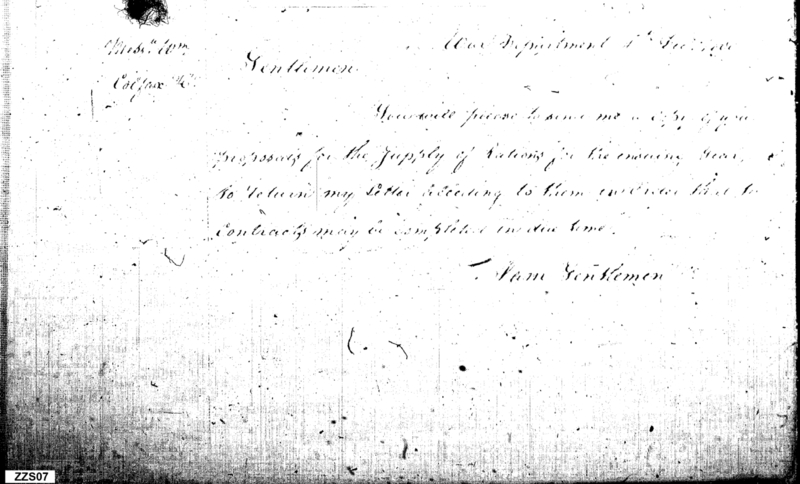 Mess.rs Wm
Colfax &c
War Department
Gentlemen
You will please to send me a Copy of your
proposals for the Supply of Rations for the ensuing Year,
to return my Letter acceeding to them in Order that the
Contracts may be completed in due time.
I am Gentlemen
ZZS07